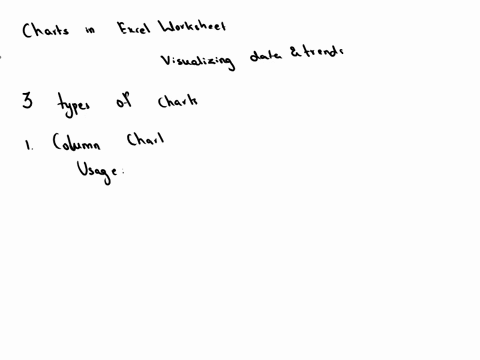 Charts in Excel Worksheet
Visualizing data & trends
3 types of charts
1. Column Chart
Usage.